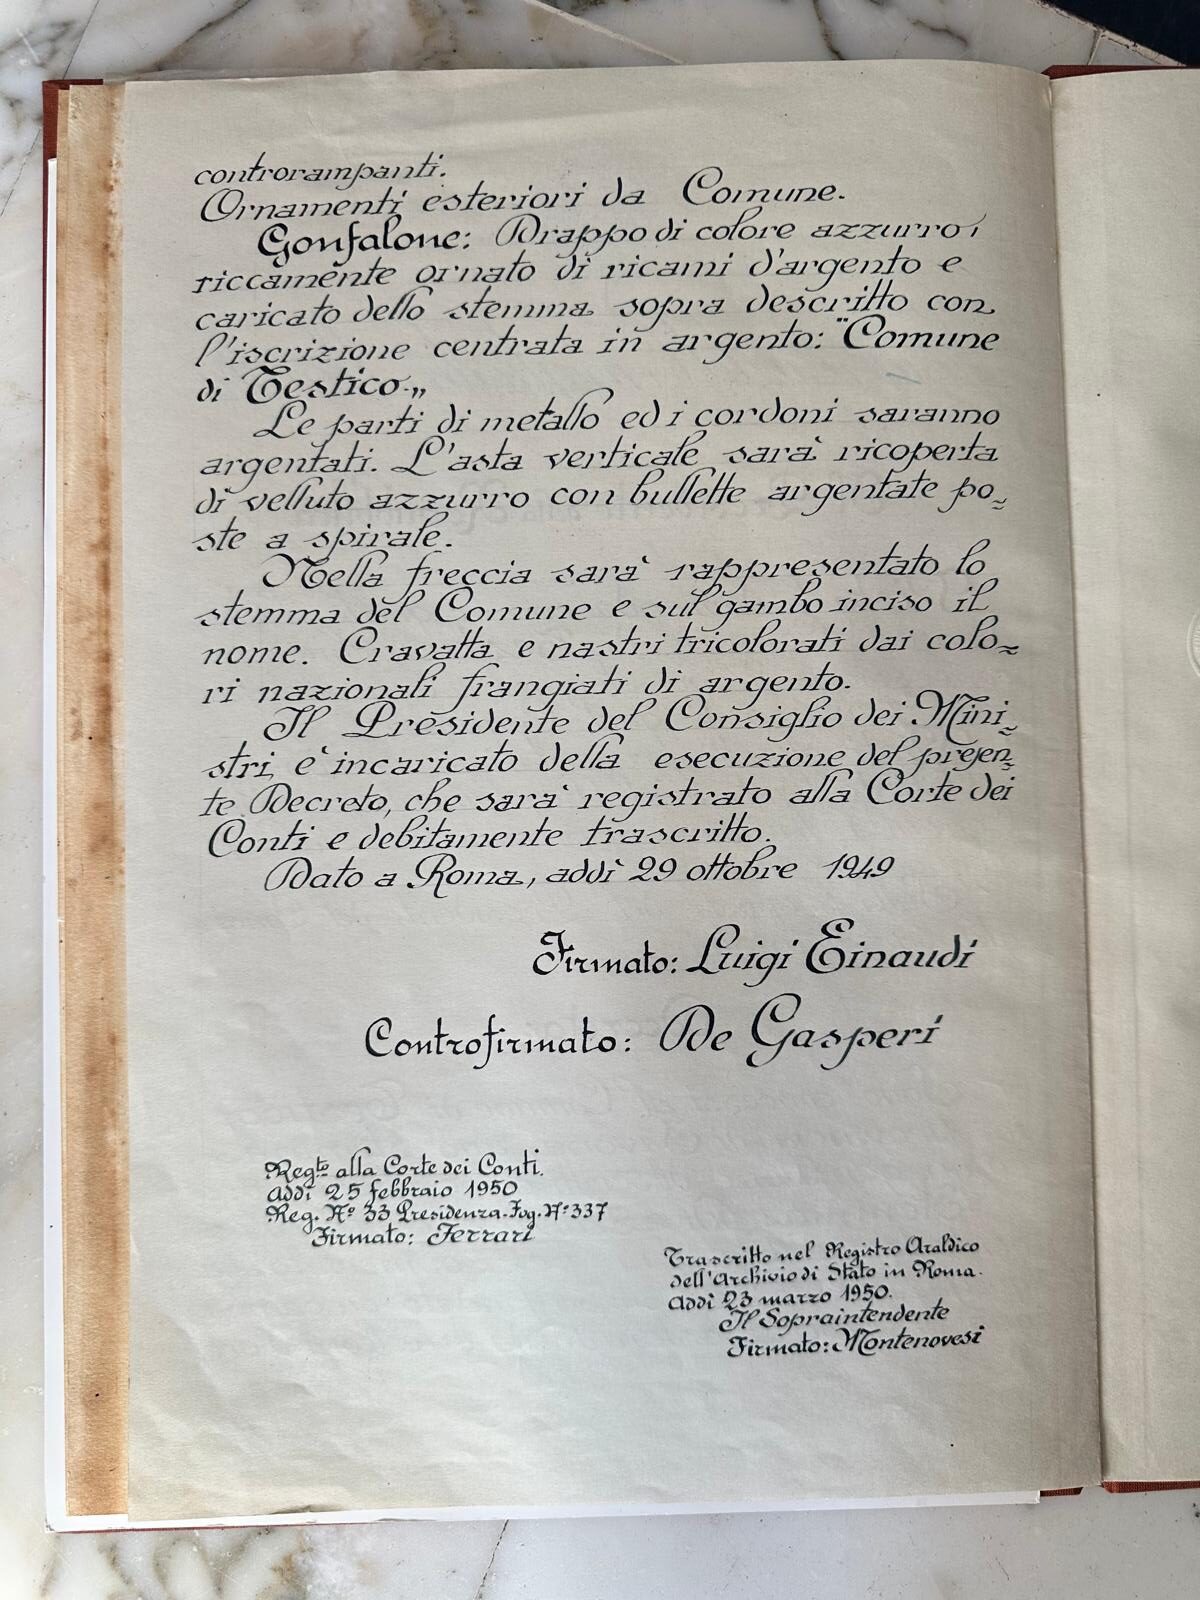 controrampanti.
Ornamenti esteriori da Comune.
Gonfalone: Drappo di colore azzurro,
riccamente ornato di ricami d'argento e
caricato dello stemma sopra descritto con
l'iscrizione centrata in argento: "Comune
di Testico„
Le parti di metallo ed i cordoni saranno
argentati. L'asta verticale sarà ricoperta
di velluto azzurro con bullette argentate po=
ste a spirale.
Nella freccia sarà rappresentato lo
stemma del Comune e sul gambo inciso il
nome. Cravatta e nastri tricolorati dai colo=
ri nazionali frangiati di argento.
Il Presidente del Consiglio dei Mini=
stri è incaricato della esecuzione del presen=
te Decreto, che sarà registrato alla Corte dei
Conti e debitamente trascritto.
Dato a Roma, addì 29 ottobre 1949
Firmato: Luigi Einaudi
Controfirmato: De Gasperi
Regto alla Corte dei Conti.
Addì 25 febbraio 1950
Reg. No 33 Presidenza. Fog. No 337
Firmato: Ferrari
Trascritto nel Registro Araldico
dell'Archivio di Stato in Roma.
Addì 23 marzo 1950.
Il Sopraintendente
Firmato: Montenovesi